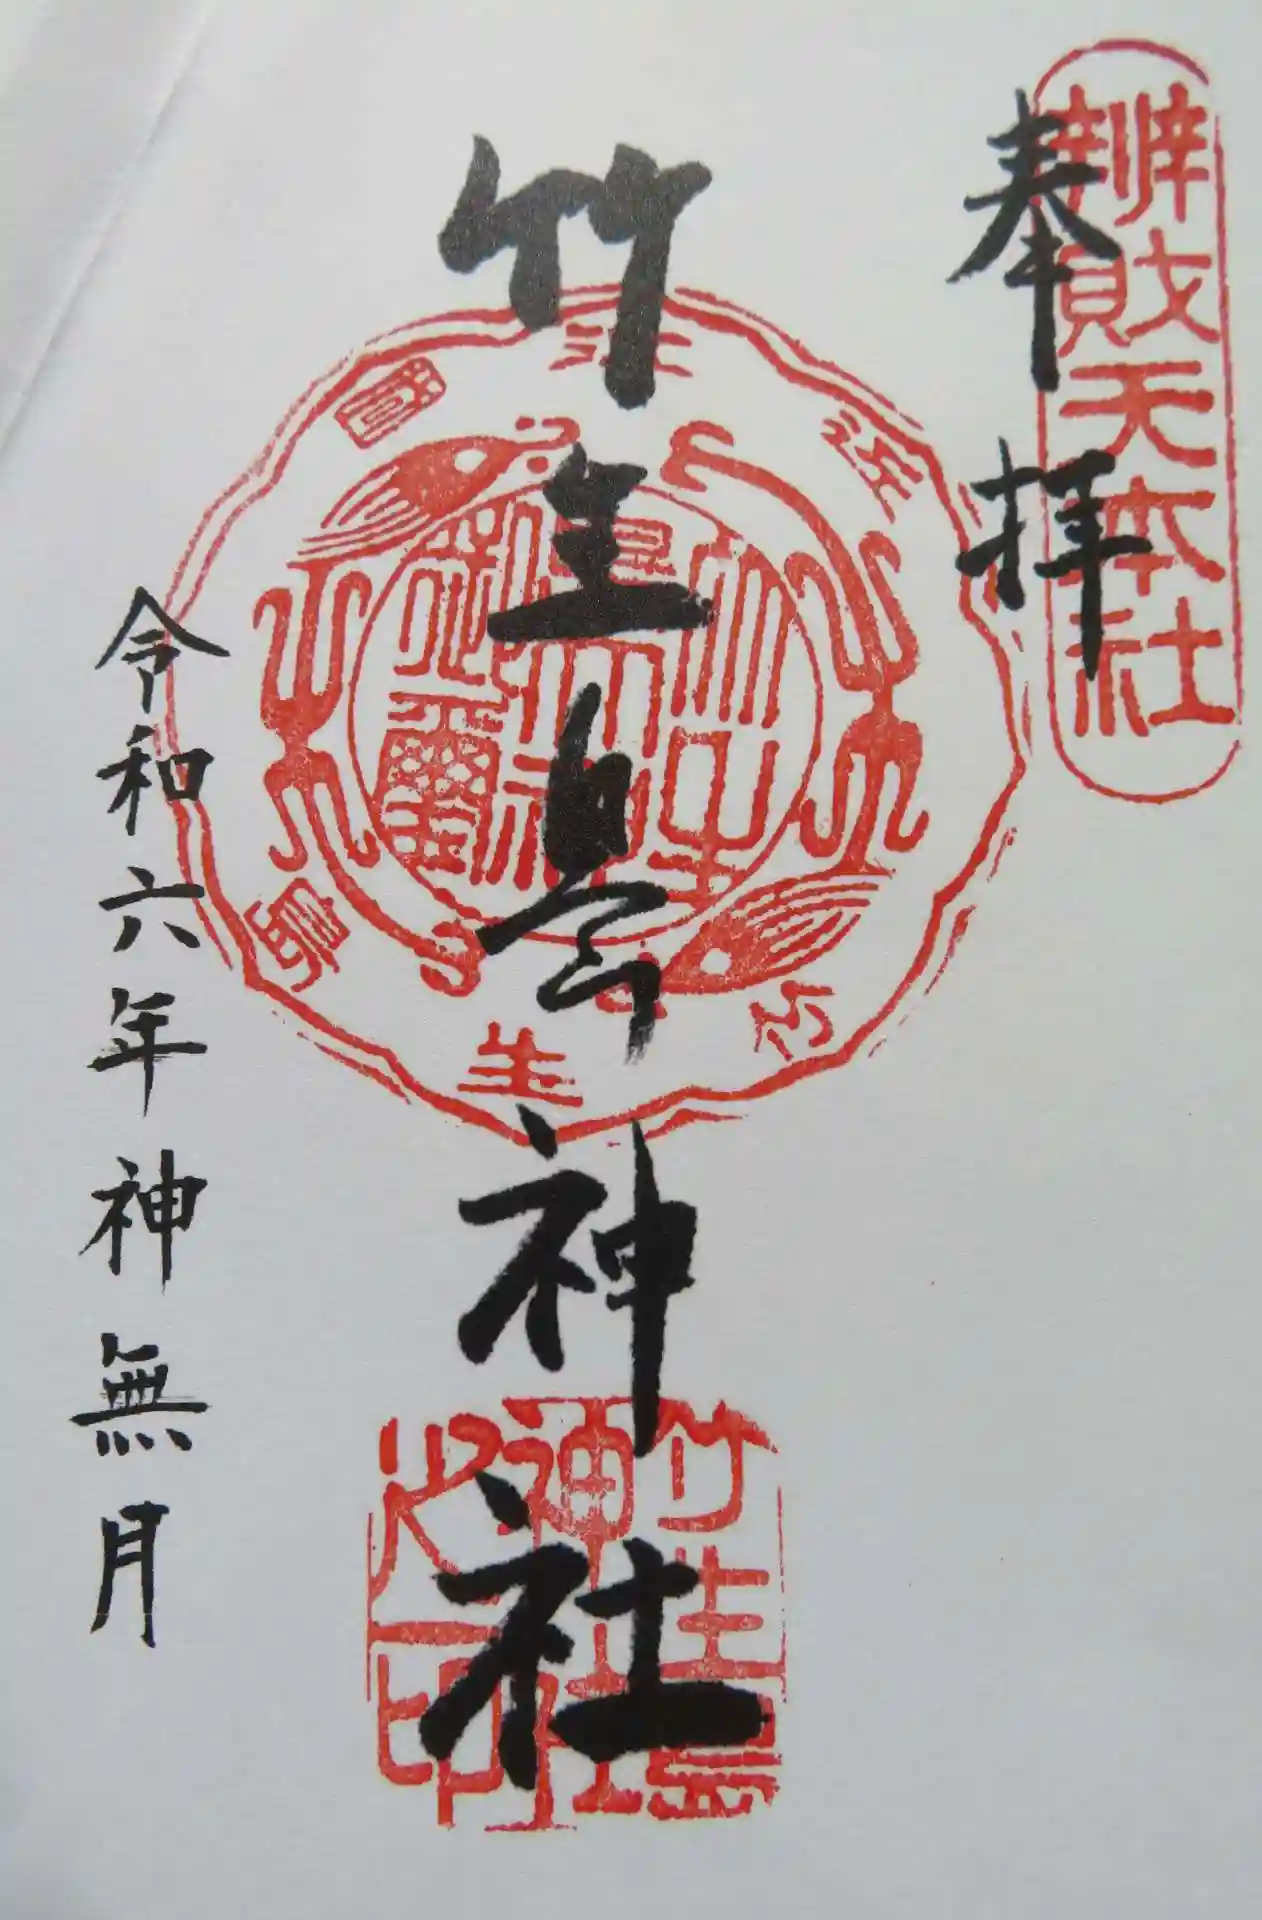 辨財天本社
奉拝
竹生島神社
近江國竹生島
竹生島神社之印
令和六年神無月